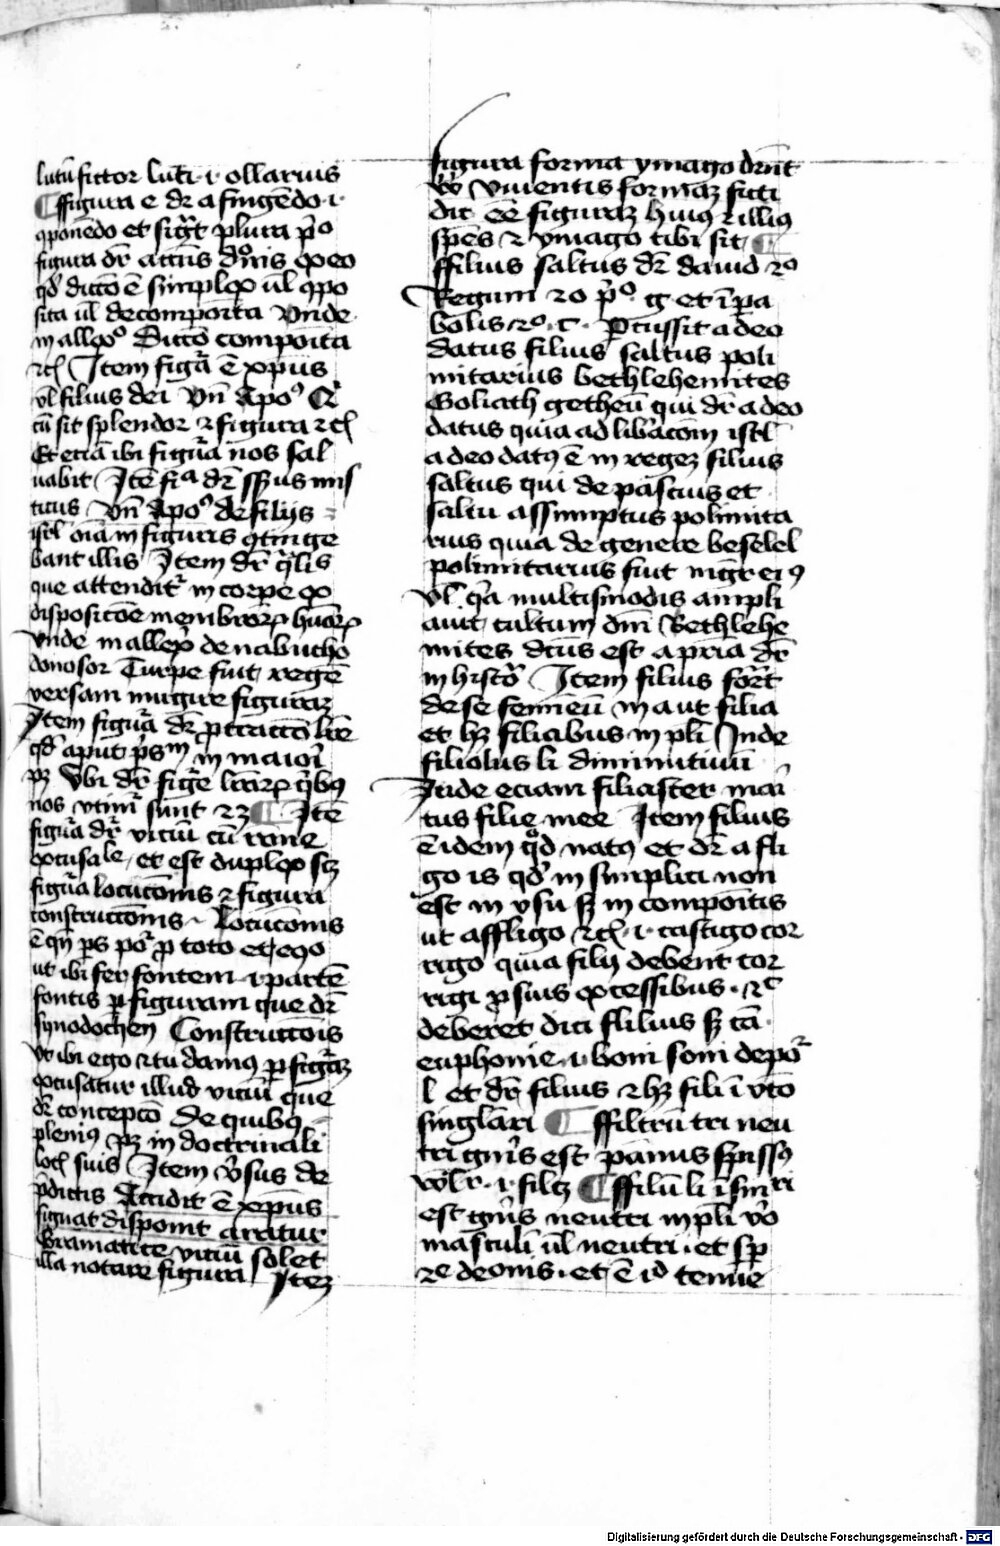 lutū fictor luti .i. ollarius
¶ ffigura e dr a fingēdo .i.
ꝯponēdo et sigͬt plura pͦo
figura dr̄ actus dōnis ex eo
qd̓ dictō ē simplex ul̓ ꝯpo
sita ul̓ decomposita Unde
in allexͦ Dictō composita
rc̄ Item figͣa ē xp̄us
ul̓ filius dei Un̄ Apoˢ Q
cū sit splendor ⁊ figura rc̄
Et eciā ibi figuͣa nos sal
uabit Itē fiͣa dr̄ sp̄us mis
ticus Un̄ Apoˢ de filijs
isrl̓ oīa in figuris ꝯtinge
bant illis Item dr̄ qͣlis
que attenditͬ in corpe ex
disposicōe membrorꝝ huorꝝ
Unde in allexͦ de nabucho
donosor Turpe fuit regē
versam mugire figuraꝫ
Item figuͣa dr̄ ꝓtractō lr̄e
qd̓ aput pͥsᵐ in maiori
pꝫ Ubi dr̄ figͬe lrārꝝ qͥbꝰ
nos utimͬ sunt 23 ¶ Itē
figuͣa dr̄ viciū cū rōne
excusale et est duplex scꝫ
figuͣa locucōnis ⁊ figura
construccōnis Locucōnis
ē qn̄ ps poͬ ꝓ toto et ego
ut ibi fer fontem .i. partē
fontis ꝑ figuram que dr̄
synodochen Construccōis
ut ibi ego ⁊ tu damꝰ ꝑ figͣaꝫ
excusatur illud viciū que
dr̄ concepcō De quibꝰ
pleniꝰ pꝫ in doctrinali
loc̄ suis Item vͥsus de
p̄dictis Accidit ē xp̄us
signat disponit aratur
Gramatice viciū solet
illa notare figura Iteꝫ
figura forma ymago drn̄t
vͦo Viuentis formaꝫ ficti
dic ēē figuraꝫ Huiꝰ ⁊ illiꝰ
spēs ⁊ ymago tibi sit ¶
ffilius saltus dr̄ dauid 2ͦ
Regum 20 pͦ. g. et ī pa
bolis 2ͦ. c. Pcussit adeo
datus filius saltus poli
mitarius bethlehemites
Goliath getheū qui dr̄ adeo
datus quia ad libͣacōm isrl̓
adeodatꝰ ē in regeꝫ filius
saltus qui de pascuis et
saltu assumptus polimita
rius quia de genere beselel
polimitarius fuit mgr̄ eiꝰ
Ul̓ qͣa multismodis ampli
auit cultum dn̄i Bethlehe
mites dcūs est a pͥria dr̄
in histͦr Item filius forͬt
de se femeū in a ut filia
et hꝫ filiabus in pl̓i Inde
filiolus li diminutiuū
Inde eciam filiaster mari
tus filie mee Item filius
ē idem qͦd natꝰ et dr̄ a fli
go is qd̓ in simplici non
est in usu sꝫ in compositis
ut affligo rc̄ .i. castigo cor
rigo quia filij debent cor
rigi ꝓ suis excessibus . ⁊ c̓
deberet dici flilius sꝫ cā
euphonie .i. boni soni depoͬ
l et dr̄ filius ⁊ hꝫ fili ī vtō
singlari ¶ ffiltrū tri neu
tri gnͥis est pānus spissꝰ
vͦl .i. filcꝫ ¶ ffilū li ī singͬi
est gn̄is neutri in pl̓i vͦo
masculi ul̓ neutri . et sp
re deonis . et ē id tenue